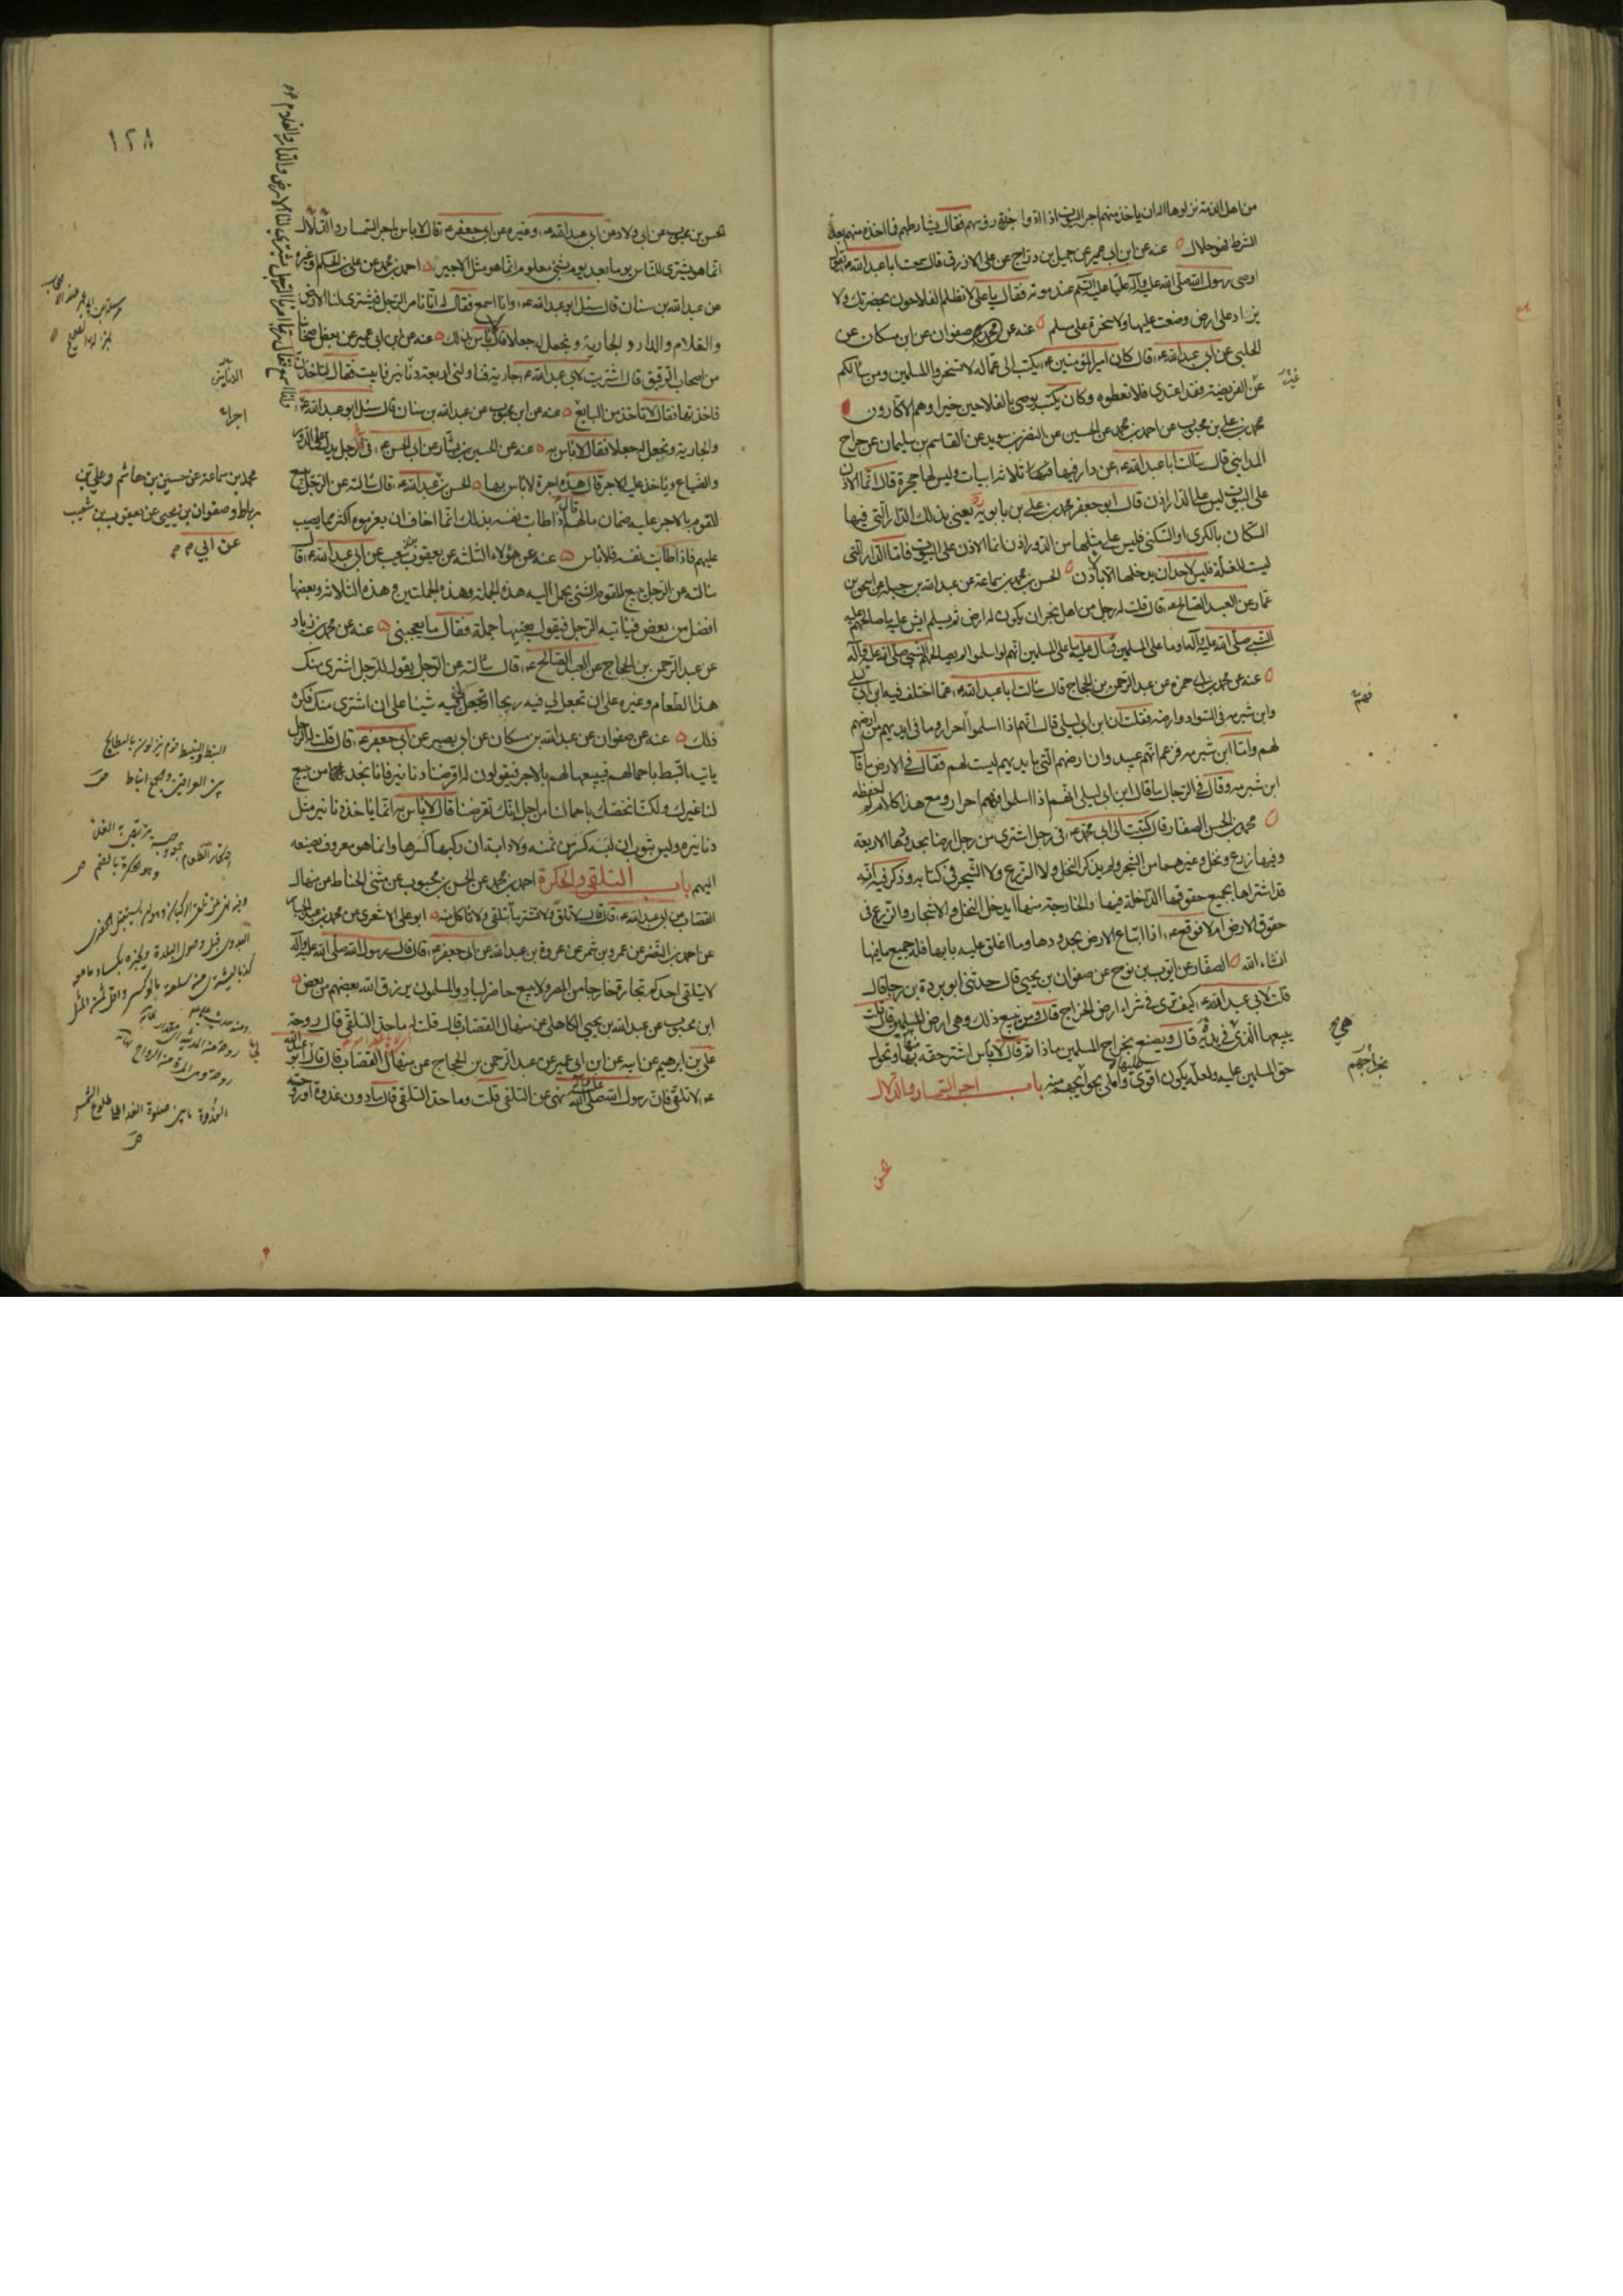 من اهل الذمة نزلوها اله ان ياخذ منهم اجر البيوت اذا ادوا جزية رؤسهم فقال يشارطهم فما اخذ منهم بعد
الشرط فهو حلال عنه عن ابن ابى عمير عن جميل بن دراج عن على الازرق قال سمعت ابا عبد الله ع يقول
اوصى رسول الله صلى الله عليه وآله عليا عليه السلم عند موته فقال يا على لا تظلم الفلاحون بحضرتك ولا
يزاد على ارض وضعت عليها ولا سخرة على مسلم عنه عن صفوان عن ابن مسكان عن
الحلبى عن ابى عبد الله ع قال كان امير المؤمنين ع يكتب الى عماله لا تسخروا المسلمين ومن سألكم
غير الفريضة فقد اعتدى فلا تعطوه وكان يكتب يوصى بالفلاحين خيرا وهم الاكارون
محمد بن على بن محبوب عن احمد بن محمد عن الحسين عن النضر بن سويد عن القاسم بن سليمان عن جراح
المداينى قال سألت ابا عبد الله ع عن دار فيها ثلاثة ابيات وليس لها حجرة قال انما الاذن
على البيوت ليس على الدار اذن قال ابو جعفر محمد بن على بن بابويه يعنى بذلك الدار التى فيها
السكان بالكرى او السكنى فليس على مثلها من الدور اذن انما الاذن على البيوت فاما الدار التى
ليست للغلة فليس لاحد ان يدخلها الا باذن الحسن بن محمد بن سماعة عن عبد الله بن جبلة عن اسحق بن
عمار عن العبد الصالح ع قال قلت له رجل من اهل نجران يكون له ارض ثم يسلم ايش عليه ما صالحهم عليه
النبى صلى الله عليه وآله او ما على المسلمين فقال عليه ما على المسلمين انهم لو اسلموا لم يصالحهم النبى صلى الله عليه وآله
عنه عن محمد بن ابى حمزة عن عبد الرحمن بن الحجاج قال سألت ابا عبد الله ع عما اختلف فيه ابن ابى ليلى
وابن شبرمة فى السواد وارضه فقلت ان ابن ابى ليلى قال انهم اذا اسلموا احرار وما فى ايديهم من ارضهم
لهم واما ابن شبرمة فزعم انهم عبيد وان ارضهم التى بايديهم ليست لهم فقال فى الارض ما قال
ابن شبرمة وقال فى الرجال ما قال ابن ابى ليلى انهم اذا اسلموا فهم احرار ومع هذا كلام لم احفظه
محمد بن الحسن الصفار قال كتبت الى ابى محمد ع فى رجل اشترى من رجل ارضا بحدودها الاربعة
وفيها زرع ونخل وغيرهما من الشجر ولم يذكر النخل ولا الزرع ولا الشجر فى كتابه وذكر فيه انه
قد اشتراها بجميع حقوقها الداخلة فيها والخارجة منها ايدخل النخل والاشجار والزرع فى
حقوق الارض ام لا فوقع ع اذا ابتاع الارض بحدودها وما اغلق عليه بابها فله جميع ما فيها
انشاء الله الصفار عن ايوب بن نوح عن صفوان بن يحيى قال حدثنى ابو بردة بن رجا قال
قلت لابى عبد الله ع كيف ترى فى شراء ارض الخراج قال ومن يبيع ذلك وهى ارض المسلمين قال قلت
يبيعها الذى فى يده قال ويصنع بخراج المسلمين ماذا ثم قال لا باس اشتر حقه منها وتحول
حق المسلمين عليه ولعله يكون اقوى عليها واملى بخراجهم منه باب اجر السمسار والدلال
غير
هى
بخراجهم
١٢٨
الحسن بن محبوب عن ابى ولاد عن ابى عبد الله ع وغيره عن ابى جعفر ع قال لا باس باجر السمسار والدلال
انما هو يشترى للناس يوما بعد يوم بشىء معلوم انما هو مثل الاجير احمد بن محمد عن على بن الحكم وغيره
عن عبد الله بن سنان قال سئل ابو عبد الله ع وانا اسمع فقال له انا نامر الرجل فيشترى لنا الارض
والغلام والدار والجارية ونجعل له جعلا قال لا باس بذلك عنه عن ابن ابى عمير عن بعض اصحابنا
من اصحاب الرقيق قال اشتريت لابى عبد الله ع جارية فناولنى اربعة دنانير فابيت فقال لتاخذن
فاخذتها فقال لا تاخذ من البايع عنه عن ابن محبوب عن عبد الله بن سنان قال سئل ابو عبد الله ع
والجارية ونجعل له جعلا فقال لا باس به عنه عن الحسين بن بشار عن ابى الحسن ع فى الرجل يدل على الدور
والضياع وياخذ عليه الاجر قال هذه اجرة لا باس بها الحسن بن عبد الله ع قال سألته عن الرجل يبيع
للقوم بالاجر عليه ضمان مالهم قال اذا طابت نفسه بذلك انما اخاف ان يغرموه اكثر مما يصيب
عليهم فاذا طابت نفسه فلا باس عنه عن هؤلاء الثلثة عن يعقوب بن شعيب عن ابى عبد الله ع قال
سألته عن الرجل يبيع للقوم الشىء يحمل اليه هذه الجملة وهذه الجملتين وهذه الثلاثة وبعضها
افضل من بعض فياتيه الرجل فيقول بعنيها جملة فقال ما يعجبنى عنه عن محمد بن زياد
عن عبد الرحمن بن الحجاج عن العبد الصالح ع قال سألته عن الرجل يقول للرجل اشترى منك
هذا الطعام وغيره على ان تجعل لى فيه ربحا او تجعل لى فيه شيئا على ان اشترى منك فكره
ذلك عنه عن صفوان عن عبد الله بن مسكان عن ابى بصير عن ابى جعفر ع قال قلت له الرجل
ياتيه النبط باحمالهم فيبيعها لهم بالاجر فيقولون له اقرضنا دنانير فانا نجد من يبيع
لنا غيرك ولكنا نخصك باحمالنا من اجل انك تقرضنا قال لا باس به انما ياخذ دنانير مثل
دنانيره وليس بثوب ان لبسه كسر من ثمنه ولا دابة ان ركبها كسرها وانما هو معروف يصنعه
اليهم باب التلقى والحكرة احمد بن محمد عن الحسن بن محبوب عن مثنى الحناط عن منهال
القصاب عن ابى عبد الله ع قال قال لا تلق ولا تشتر ما تلقى ولا تاكل منه ابو على الاشعرى عن محمد بن عبد الجبار
عن احمد بن النضر عن عمرو بن شمر عن عروة بن عبد الله عن ابى جعفر ع قال قال رسول الله صلى الله عليه وآله
لا يتلقى احدكم تجارة خارجا من المصر ولا يبيع حاضر لباد والمسلمون يرزق الله بعضهم من بعض
ابن محبوب عن عبد الله بن يحيى الكاهلى عن منهال القصاب قال قلت له ما حد التلقى قال روحة
على بن ابرهيم عن ابيه عن ابن ابى عمير عن عبد الرحمن بن الحجاج عن منهال القصاب قال قال ابو عبد الله
ع لا تلق فان رسول الله صلى الله عليه وآله نهى عن التلقى قلت وما حد التلقى قال ما دون غدوة او روحة
محمد بن سماعة عن حسين بن هاشم وعلى بن
رباط وصفوان بن يحيى عن يعقوب بن شعيب
عن ابى
النبط والنبيط قوم ينزلون بالبطايح
بين العراقين والجمع انباط
الغدوة ما بين صلوة الغداة الى طلوع الشمس